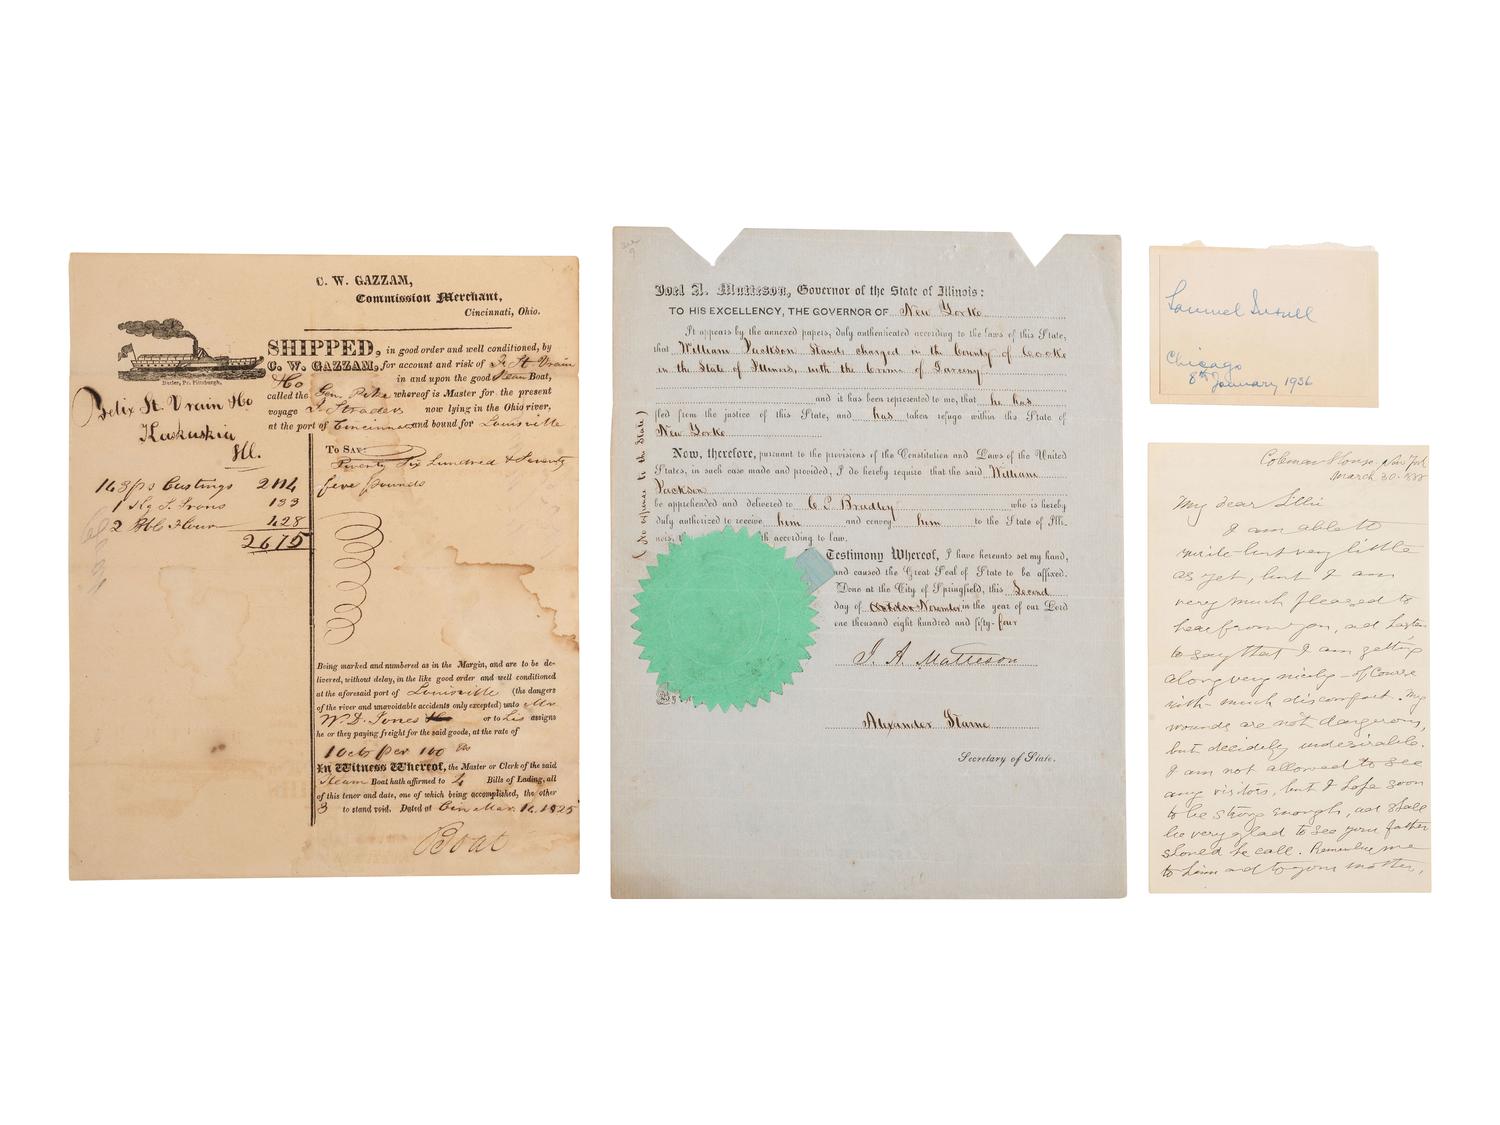 C. W. GAZZAM,
Commission Merchant,
Cincinnati, Ohio.
Butler, Pr. Pittsburgh.
SHIPPED, in good order and well conditioned, by
C. W. GAZZAM, for account and risk of F. St Vrain
&Co in and upon the good Steam Boat,
called the Gen. Pike whereof is Master for the present
voyage J. Strader now lying in the Ohio river,
at the port of Cincinnati and bound for Louisville
Felix St. Vrain &Co
Kaskaskia
Ill.
To Say:
Twenty Six hundred & Seventy
five pounds
163 ps Castings 2114
1 Kg S. Irons 133
2 Bbls Flour 428
2675
Being marked and numbered as in the Margin, and are to be de-
livered, without delay, in the like good order and well conditioned
at the aforesaid port of Louisville (the dangers
of the river and unavoidable accidents only excepted) unto Mr
W. D. Jones or to his assigns
he or they paying freight for the said goods, at the rate of
10 cts per 100 lbs
In Witness Whereof, the Master or Clerk of the said
Steam Boat hath affirmed to 4 Bills of Lading, all
of this tenor and date, one of which being accomplished, the other
3 to stand void. Dated at Cin Mar. 16. 1825
Boat
Joel A. Matteson, Governor of the State of Illinois:
TO HIS EXCELLENCY, THE GOVERNOR OF New Yorke
It appears by the annexed papers, duly authenticated according to the laws of this State,
that William Jackson Stands charged in the County of Cooke
in the State of Illinois, with the Crime of Larceny
and it has been represented to me, that he has
fled from the justice of this State, and has taken refuge within this State of
New Yorke
Now, therefore, pursuant to the provisions of the Constitution and Laws of the United
States, in such case made and provided, I do hereby require that the said William
Jackson
be apprehended and delivered to C. P. Bradley who is hereby
duly authorized to receive him and convey him to the State of Illi-
nois, according to law.
(No expence to the State)
Testimony Whereof, I have hereunto set my hand,
and caused the Great Seal of State to be affixed.
Done at the City of Springfield, this Second
day of October November in the year of our Lord
one thousand eight hundred and fifty-four
J. A. Matteson
By
Alexander Starne
Secretary of State.
Samuel Insull
Chicago
8th January 1936
Coleman House, New York
March 30.
My dear Lillie
I am able to
write but very little
as yet, but I am
very much pleased to
hear from you, and hasten
to say that I am getting
along very nicely - of course
with much discomfort. My
wounds are not dangerous,
but decidedly undesirable.
I am not allowed to see
any visitors, but I hope soon
to be strong enough, and shall
be very glad to see your father
should he call. Remember me
to him and to your mother,